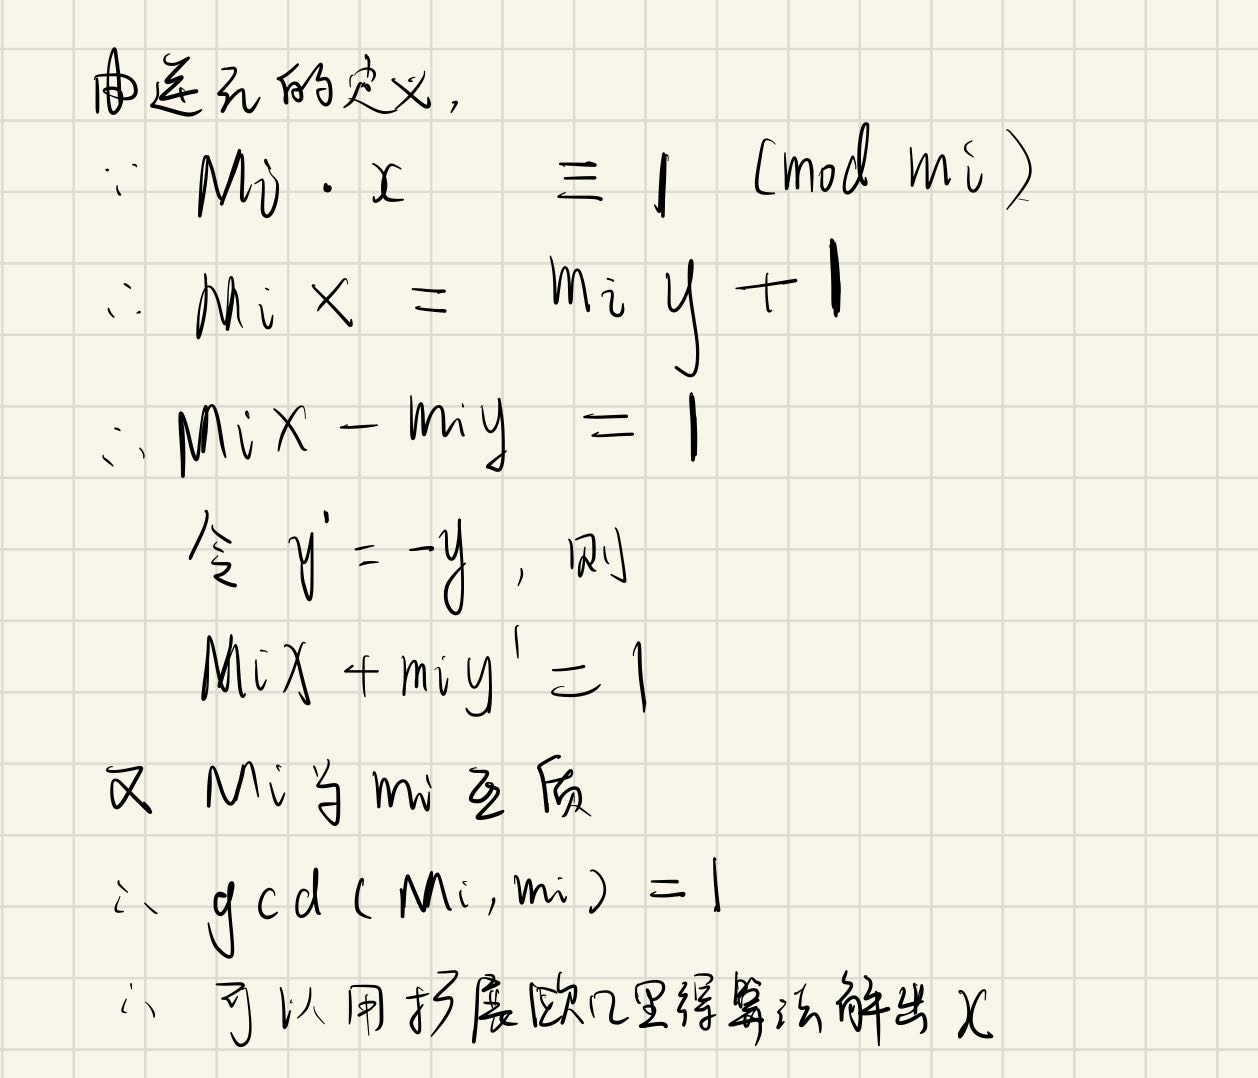 由逆元的定义,
∵ Mi · x ≡ 1 (mod mi)
∴ Mi x = mi y + 1
∴ Mi x - mi y = 1
令 y' = -y , 则
Mi x + mi y' = 1
又 Mi 与 mi 互质
∴ gcd ( Mi, mi ) = 1
∴ 可以用扩展欧几里得算法解出 x